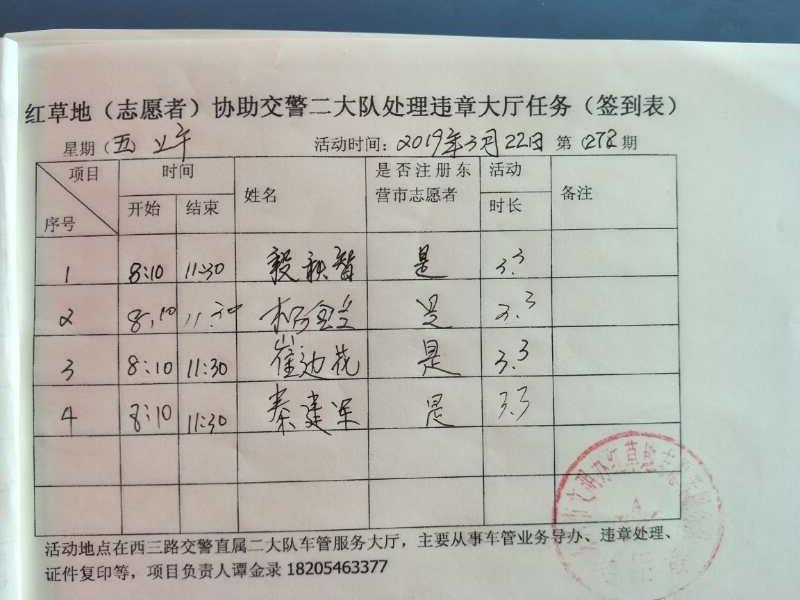 红草地（志愿者）协助交警二大队处理违章大厅任务（签到表）
星期（五 上午 活动时间：2019年3月22日 第（272期
项目 时间 姓名 是否注册东营市志愿者 活动时长 备注
序号 开始 结束
1 8:10 11:30 是 3.3
2 8:10 11:30 是 3.3
3 8:10 11:30 是 3.3
4 8:10 11:30 秦建军 是 3.3
活动地点在西三路交警直属二大队车管服务大厅，主要从事车管业务导办、违章处理、
证件复印等，项目负责人谭金录 18205463377